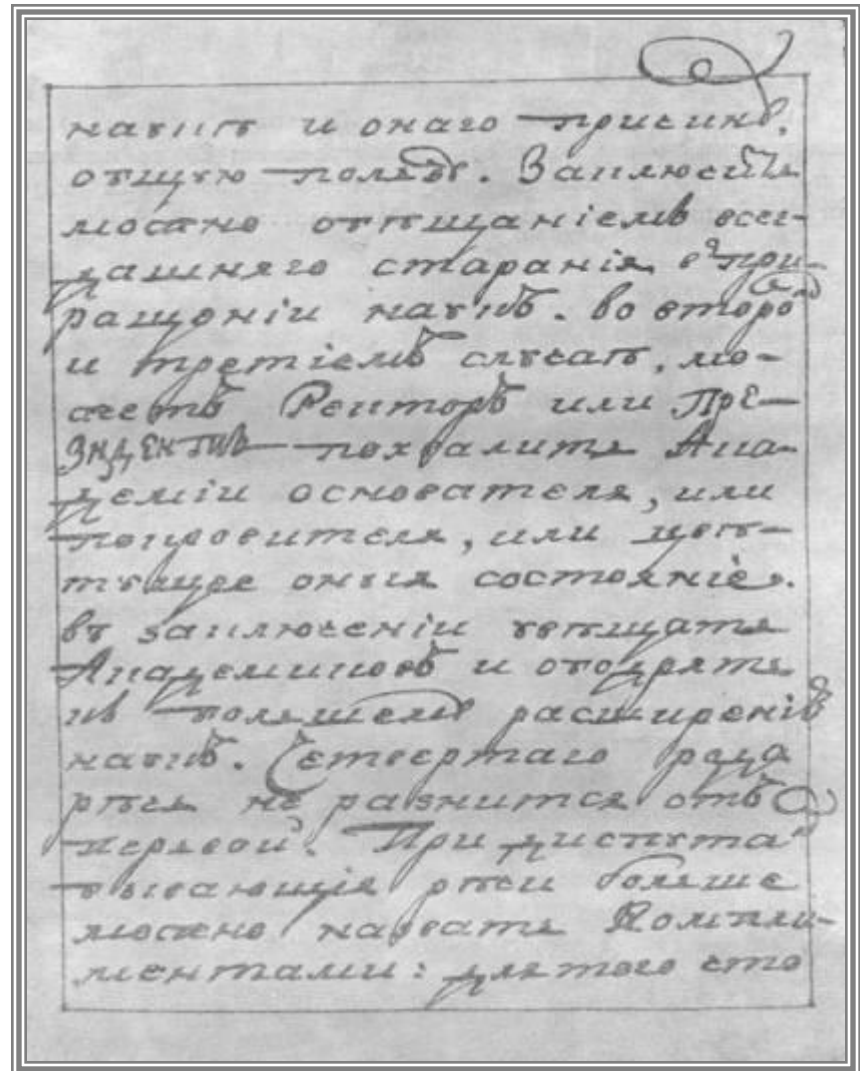 наукъ и онаго причинъ,
общую ползу. Заключить
можно обѣщаніемъ все-
гдашняго старанія в при-
ращеніи наукъ. во второ
и третіемъ случаѣ, мо-
жетъ Ректоръ или Пре-
зидентъ похвалить Ака-
деміи основателя, или
покровителя, или цвѣ-
тущее оныя состояніе.
въ заключеніи увѣщать
Академиковъ и ободрять
къ полшемъ расширенію
наукъ. Четвертаго рода
рѣчь не разнится отъ
первой. При диспута
бывающія рѣчи больше
можно назвать Компли-
ментами: для того что